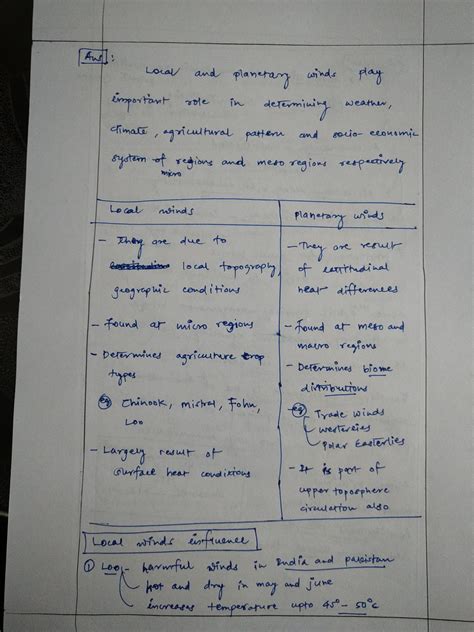 Ans:
Local and planetary winds play
important role in determining weather,
climate, agricultural pattern and socio-economic
system of regions and meso regions respectively
micro
Local winds
- They are due to
local topography,
geographic conditions
- Found at micro regions
- Determines agriculture crop
types
eg Chinook, mistral, Fohn,
Loo
- Largely result of
surface heat conditions
planetary winds
- They are result
of latitudinal
heat differences
- Found at meso and
macro regions
- Determines biome
distributions
eg Trade winds
westerlies
Polar Easterlies
- It is part of
upper toposphere
circulation also
Local winds influence
① Loo - harmful winds in India and pakistan
hot and dry in may and june
increases temperature upto 45° - 50°c